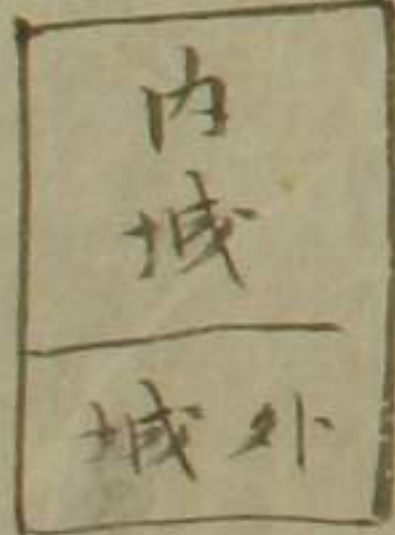 内
城
外城